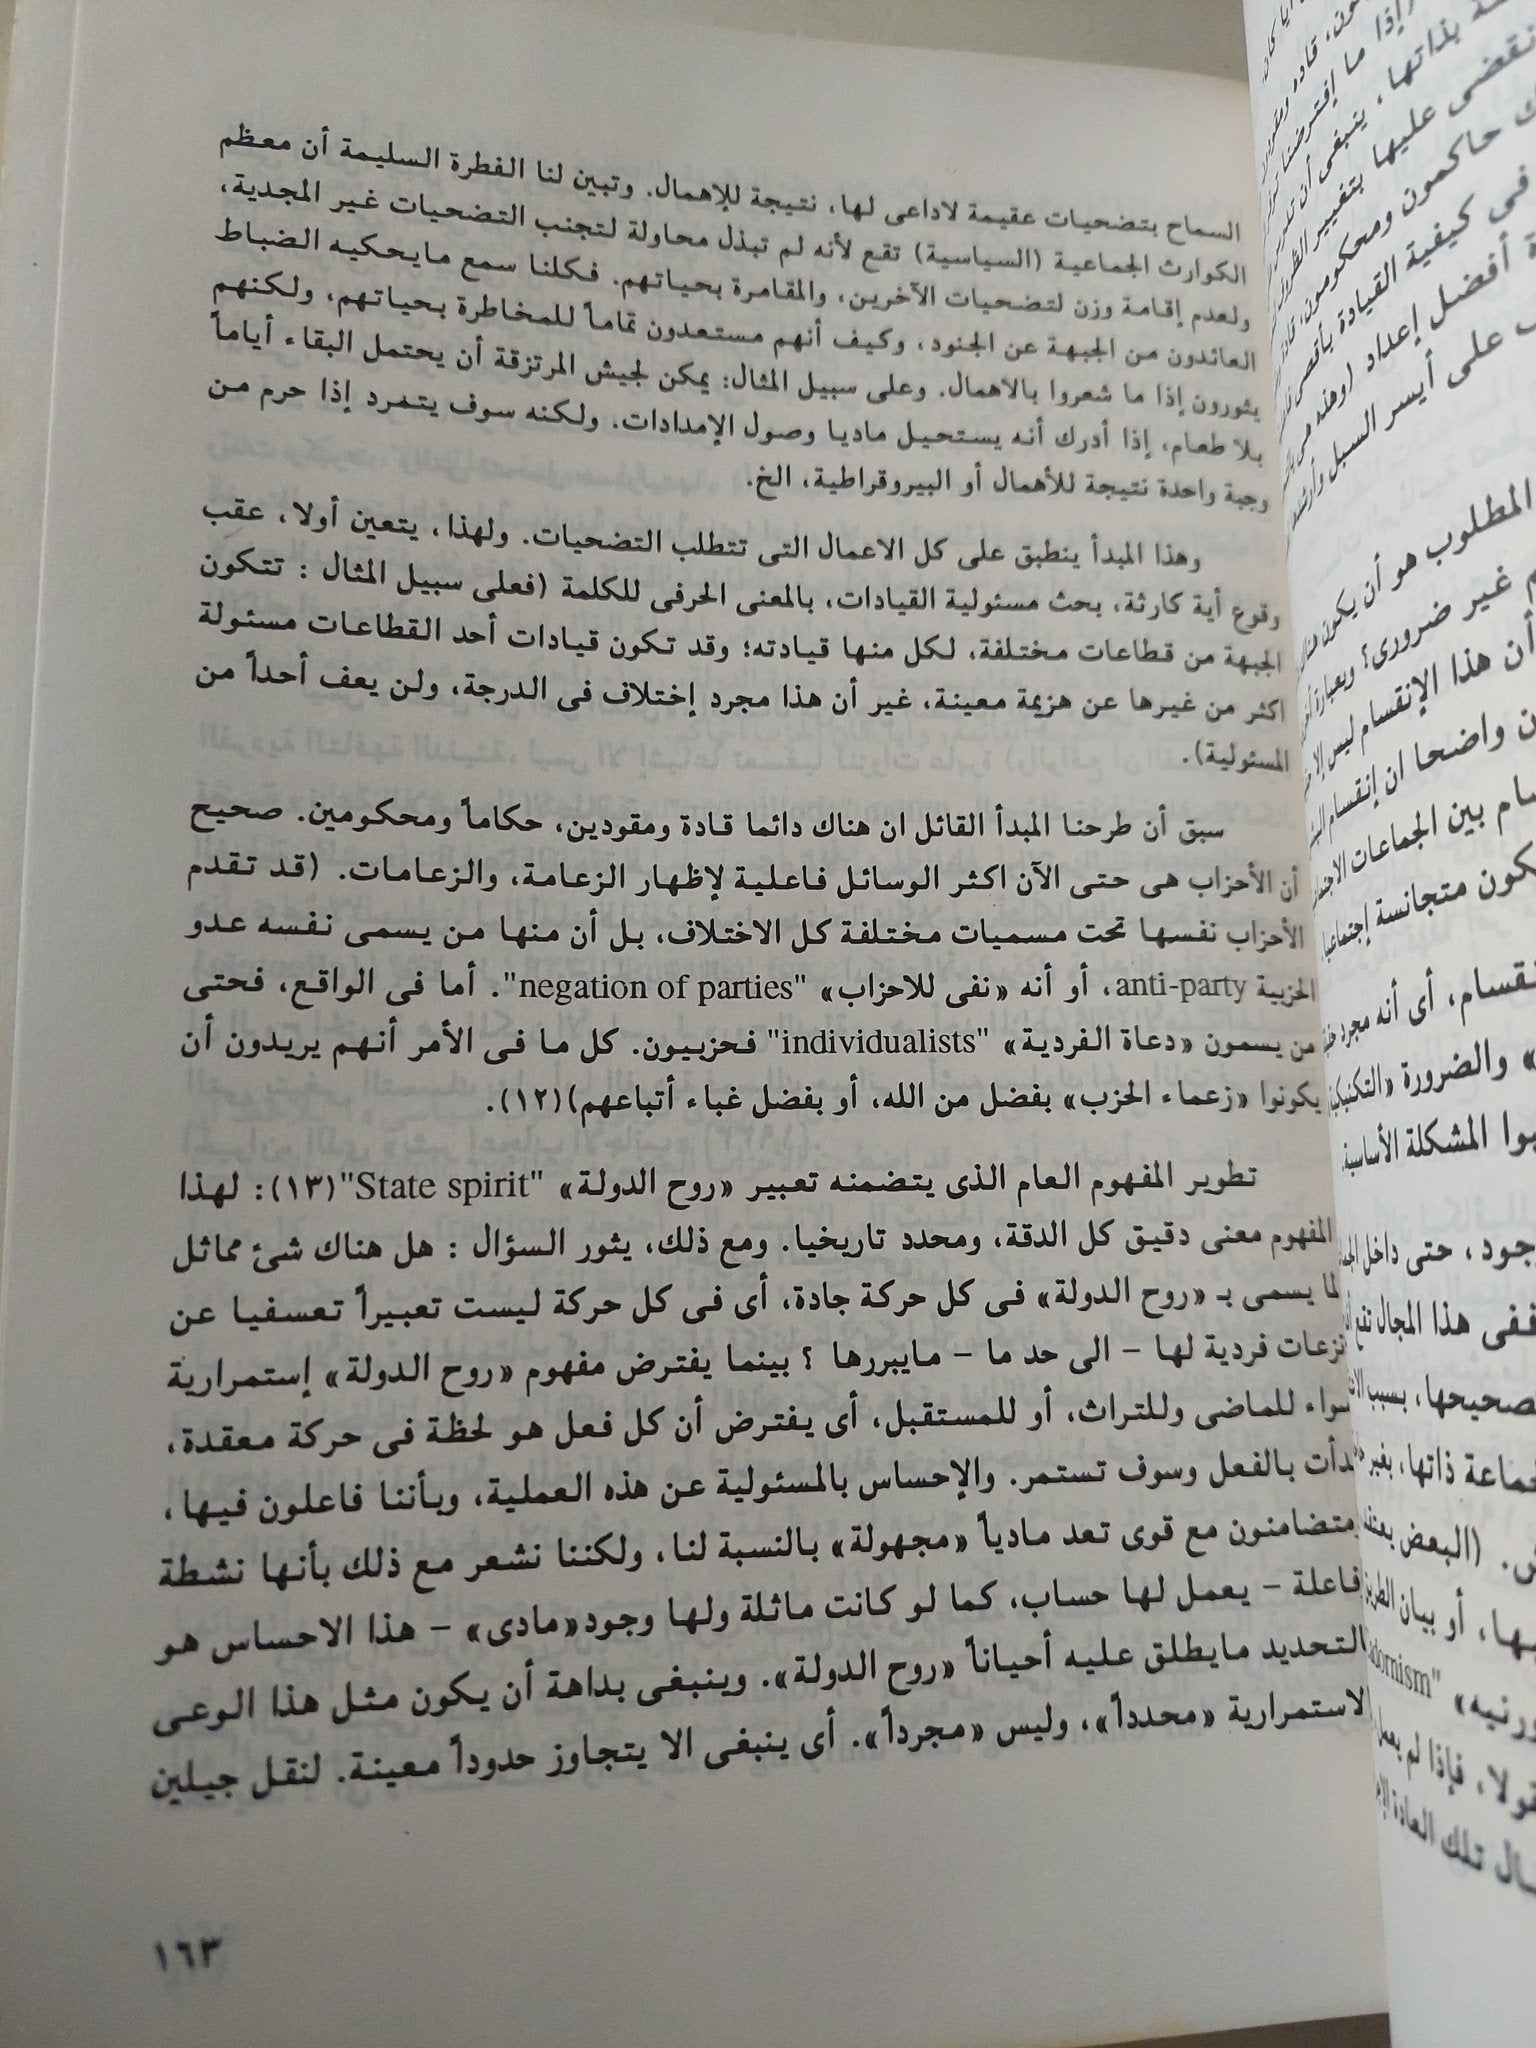 السماح بتضحيات عقيمة لاداعى لها، نتيجة للإهمال. وتبين لنا الفطرة السليمة أن معظم
الكوارث الجماعية (السياسية) تقع لأنه لم تبذل محاولة لتجنب التضحيات غير المجدية،
ولعدم إقامة وزن لتضحيات الآخرين، والمقامرة بحياتهم. فكلنا سمع مايحكيه الضباط
العائدون من الجبهة عن الجنود، وكيف أنهم مستعدون تماماً للمخاطرة بحياتهم، ولكنهم
يثورون إذا ما شعروا بالاهمال. وعلى سبيل المثال: يمكن لجيش المرتزقة أن يحتمل البقاء أياماً
بلا طعام، إذا أدرك أنه يستحيل ماديا وصول الإمدادات. ولكنه سوف يتمرد إذا حرم من
وجبة واحدة نتيجة للأهمال أو البيروقراطية، الخ.
وهذا المبدأ ينطبق على كل الاعمال التى تتطلب التضحيات. ولهذا، يتعين أولا، عقب
وقوع أية كارثة، بحث مسئولية القيادات، بالمعنى الحرفى للكلمة (فعلى سبيل المثال : تتكون
الجبهة من قطاعات مختلفة، لكل منها قيادته؛ وقد تكون قيادات أحد القطاعات مسئولة
اكثر من غيرها عن هزيمة معينة، غير أن هذا مجرد إختلاف فى الدرجة، ولن يعف أحداً من
المسئولية).
سبق أن طرحنا المبدأ القائل ان هناك دائما قادة ومقودين، حكاماً ومحكومين. صحيح
أن الأحزاب هى حتى الآن اكثر الوسائل فاعلية لإظهار الزعامة، والزعامات. (قد تقدم
الأحزاب نفسها تحت مسميات مختلفة كل الاختلاف، بل أن منها من يسمى نفسه عدو
الحزبية anti-party، أو أنه «نفى للاحزاب» "negation of parties". أما فى الواقع، فحتى
من يسمون «دعاة الفردية» "individualists" فحزبيون. كل ما فى الأمر أنهم يريدون أن
يكونوا «زعماء الحزب» بفضل من الله، أو بفضل غباء أتباعهم)(١٢).
تطوير المفهوم العام الذى يتضمنه تعبير «روح الدولة» "State spirit"(١٣): لهذا
المفهوم معنى دقيق كل الدقة، ومحدد تاريخيا. ومع ذلك، يثور السؤال : هل هناك شئ مماثل
لما يسمى بـ «روح الدولة» فى كل حركة جادة، أى فى كل حركة ليست تعبيراً تعسفيا عن
نزعات فردية لها – الى حد ما – مايبررها ؟ بينما يفترض مفهوم «روح الدولة» إستمرارية
سواء للماضى وللتراث، أو للمستقبل، أى يفترض أن كل فعل هو لحظة فى حركة معقدة،
بدأت بالفعل وسوف تستمر. والإحساس بالمسئولية عن هذه العملية، وبأننا فاعلون فيها،
ومتضامنون مع قوى تعد مادياً «مجهولة» بالنسبة لنا، ولكننا نشعر مع ذلك بأنها نشطة
فاعلة – يعمل لها حساب، كما لو كانت ماثلة ولها وجود«مادى» – هذا الاحساس هو
بالتحديد مايطلق عليه أحياناً «روح الدولة». وينبغى بداهة أن يكون مثل هذا الوعى
الاستمرارية «محدداً»، وليس «مجرداً». أى ينبغى الا يتجاوز حدوداً معينة. لنقل جيلين
١٦٣